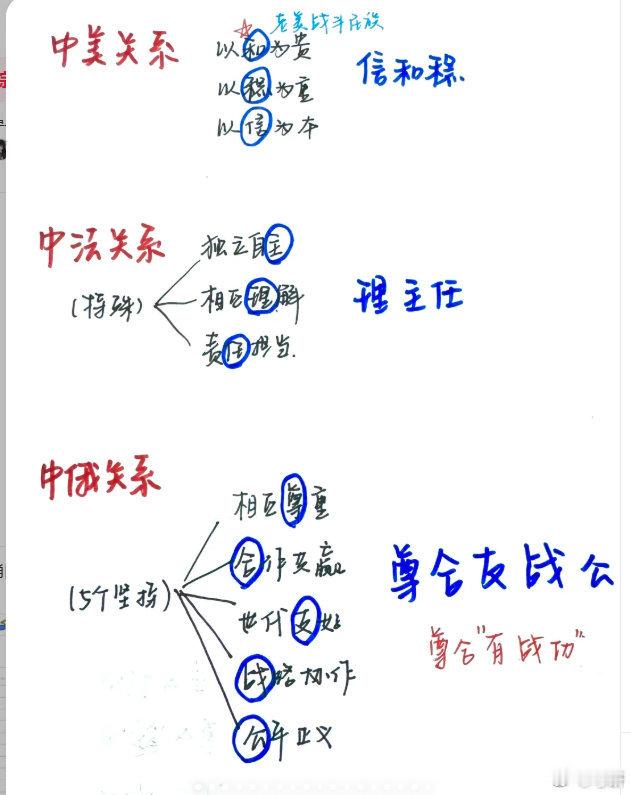 中美关系
以和为贵
以稳为重
以信为本
信和稳
中法关系
(特殊)
独立自主
相互理解
责任担当.
理主任
中俄关系
(5个坚持)
相互尊重
合作共赢
世代友好
战略协作
公平正义
尊合友战公
尊合"有战功"